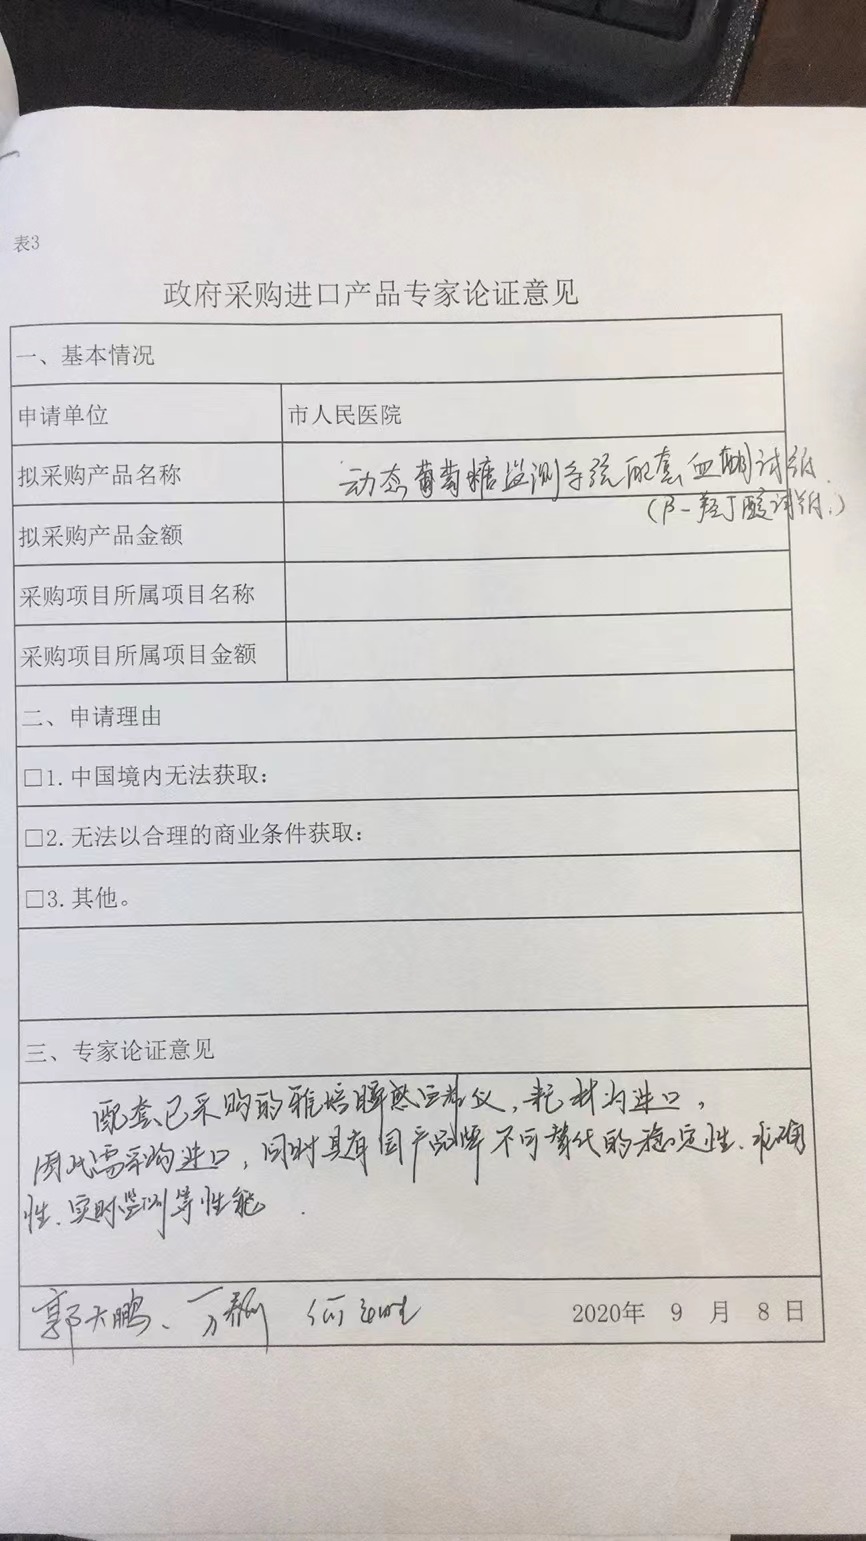 表3
政府采购进口产品专家论证意见
一、基本情况
申请单位 市人民医院
拟采购产品名称 动态葡萄糖监测系统配套血酮试纸.
(β-羟丁酸试纸.)
拟采购产品金额
采购项目所属项目名称
采购项目所属项目金额
二、申请理由
□1.中国境内无法获取:
□2.无法以合理的商业条件获取:
□3.其他。
三、专家论证意见
配套已采购的雅培瞬感 仪,耗材为进口,
因此需采购进口,同时具有国产品牌不可替代的稳定性、准确
性、实时监测等性能.
郭大鹏、 2020年 9 月 8 日